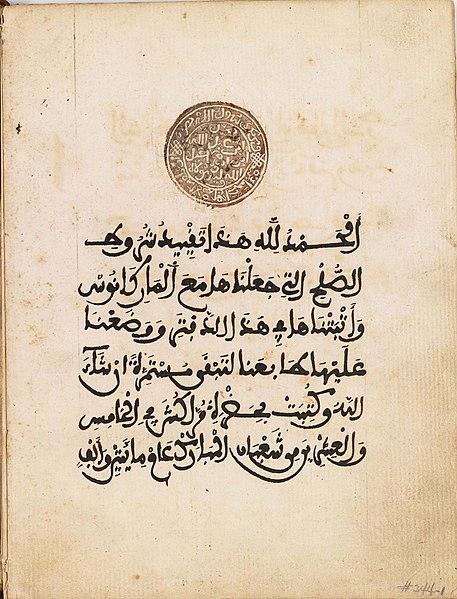 الحمد لله هذا تقييد شروط
الصلح التي جعلناها مع المار كانوس
وأثبتناها في هذا الدفتر ووضعنا
عليها طابعنا لتبقى مستمرة إن شاء
الله وكتبت بحضرة مراكش في الخامس
والعشرين من شعبان المبارك عام مائتين وألف
#244-1